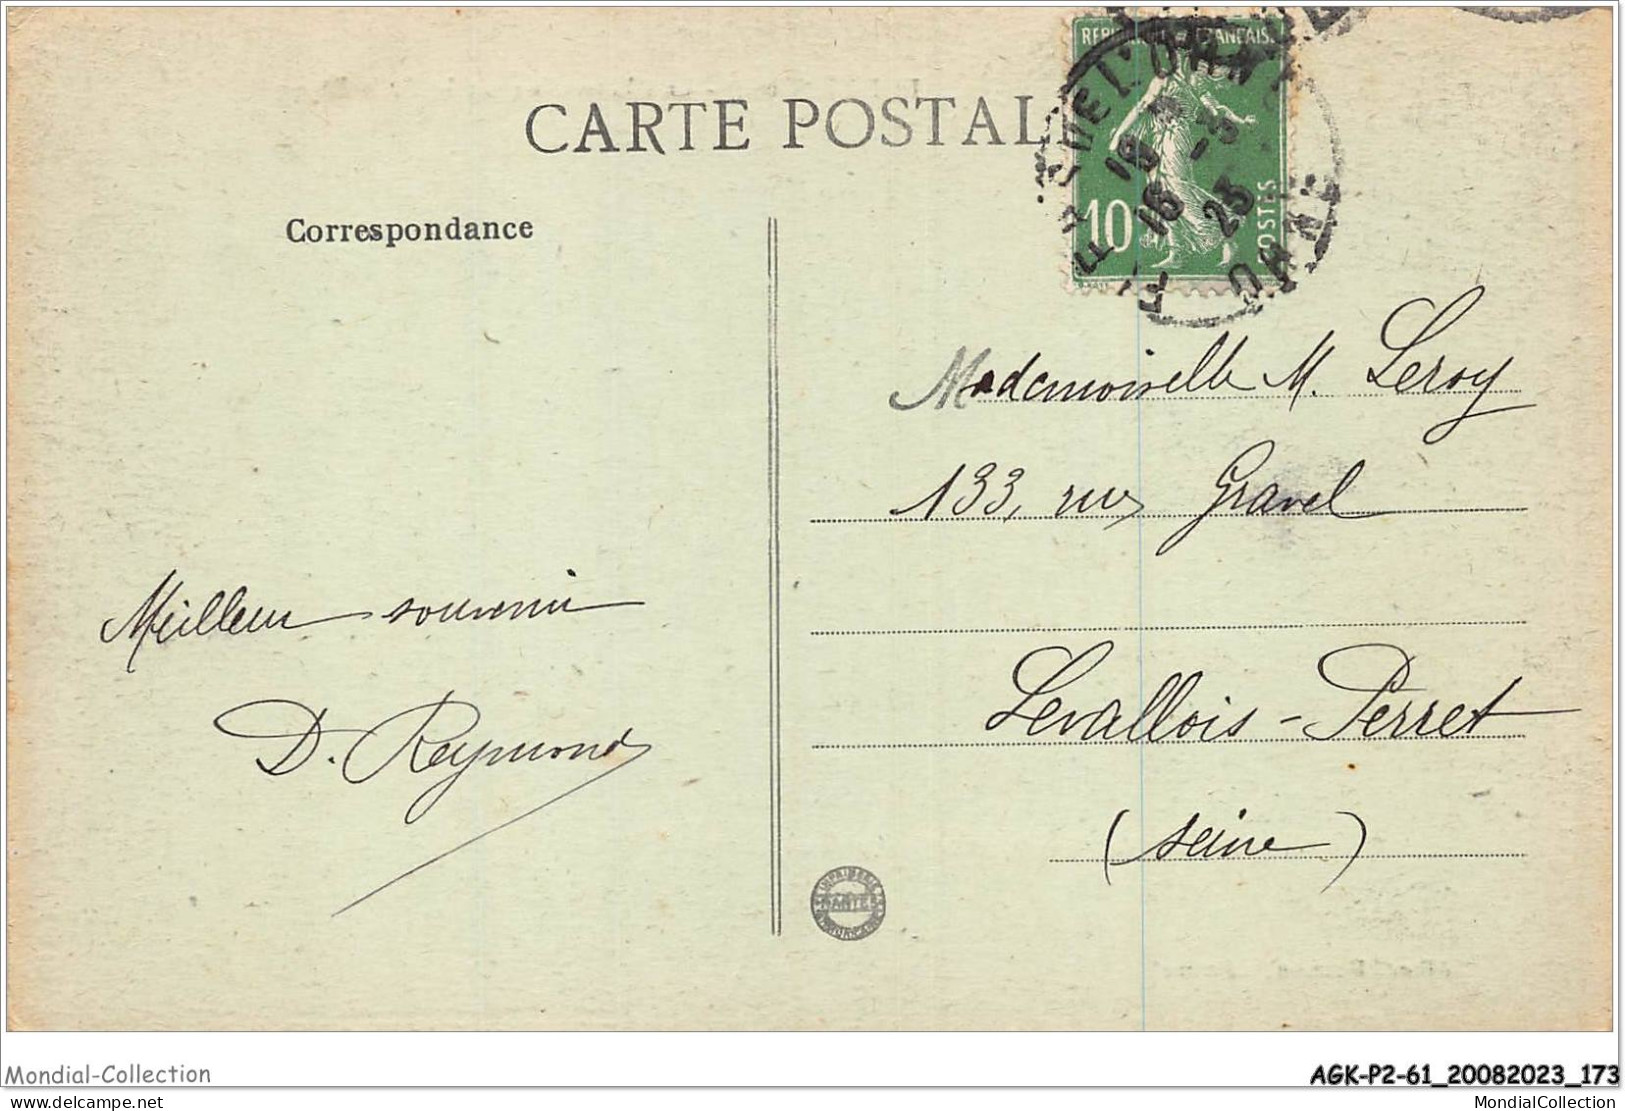 CARTE POSTAL
RÉPUBLIQUE FRANÇAISE
10
POSTES
16
18
-3
23
ORNE
Correspondance
Mademoiselle M. Leroy
133, rue Gravel
Meilleur souvenir
D. Reymond
Levallois-Perret
(Seine)
IMPRIMERIE
NANTES
Mondial-Collection
AGK-P2-61_20082023_173
www.delcampe.net
MondialCollection